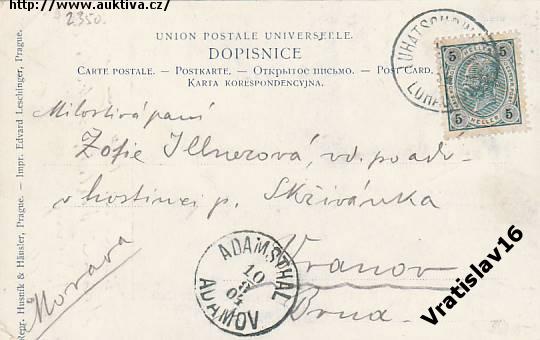 http://www.auktiva.cz/
2350.
UNION POSTALE UNIVERSELLE.
DOPISNICE
CARTE POSTALE. — POSTKARTE. — Открытое письмо. — POST CARD.
KARTA KORESPONDENCYJNA.
LUHATSCHOWITZ
5 5
5 HELLER 5
Milostivá paní
Zofie Illnerová, vd. po adv.
v hostinci p. Skřivánka
Vranov
Brna
Morava
ADAMSTHAL
10
8
04
ADAMOV
Repr. Husník & Häusler, Prague. — Impr. Edvard Leschinger, Prague.
Vratislav16